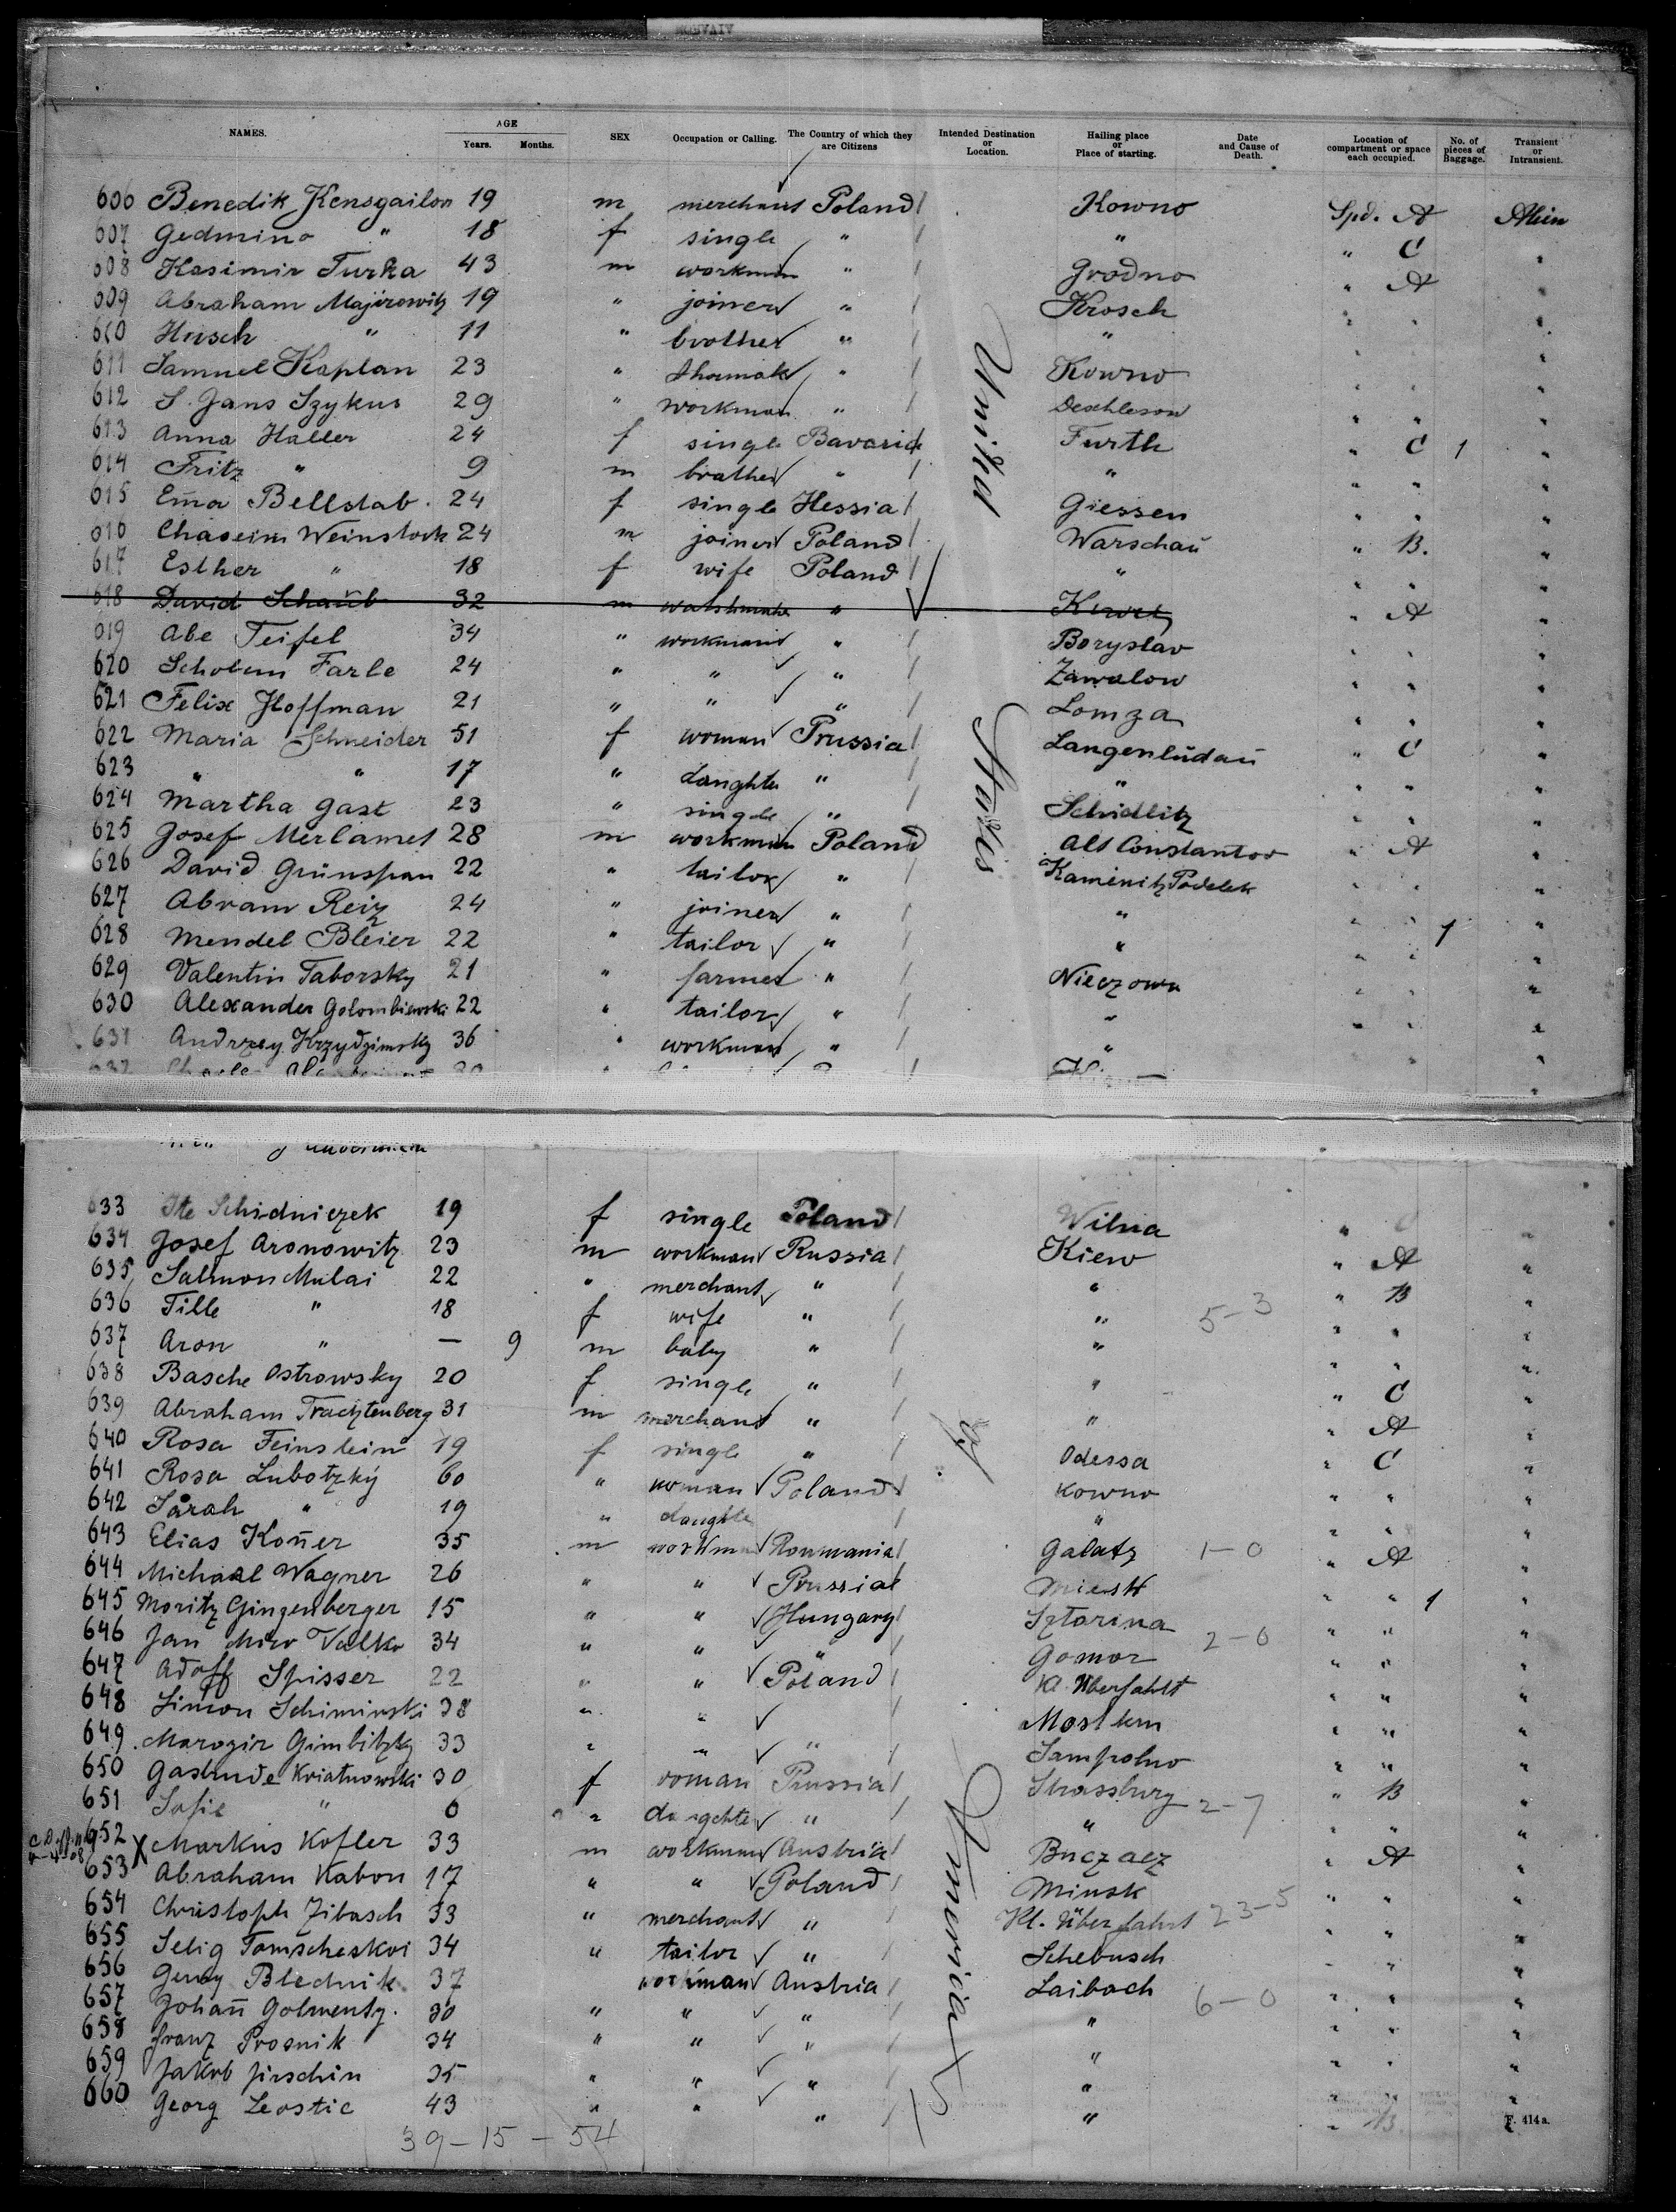 NAMES. AGE Years. Months. SEX Occupation or Calling. The Country of which they are Citizens Intended Destination or Location. Hailing place or Place of starting. Date and Cause of Death. Location of compartment or space each occupied. No. of pieces of Baggage. Transient or Intransient.
606 Benedik Kensgailon 19 m merchant Poland Kowno Spd. A
607 Gedmino " 18 f single " " " C "
608 Kasimir Turka 43 m workman " Grodno " A "
609 Abraham Majirowitz 19 " joiner " Krosch " " "
610 Hirsch " 11 " brother " " " " "
611 Samuel Kaplan 23 " " Kowno " " "
612 S. Jans Szykus 29 " workman " " " "
613 Anna Haller 24 f single Bavaria Furth " C 1 "
614 Fritz " 9 m brother " " " " "
615 Em̄a Bellstab 24 f single Hessia Giessen " " "
616 Weinstock 24 m joiner Poland Warschau " B. "
617 Esther " 18 f wife Poland " " " "
618 David Schaub 32 m " " A "
619 Abe Teifel 34 " workman " Boryslav " " "
620 Scholem Farle 24 " " " Zawalow " " "
621 Felix Hoffman 21 " " " Lomza " " "
622 Maria Schneider 51 f woman Prussia Langenlüdau " C "
623 " " 17 " daughter " " " " "
624 Martha Gast 23 " single " Schidlitz " " "
625 Josef Merlamet 28 m workman Poland Alt Constantor " A "
626 David Grünspan 22 " tailor " Kamenitz Podelsk " " "
627 Abram Reiz 24 " joiner " " " " "
628 Mendel Bleier 22 " tailor " " " " 1 "
629 Valentin Taborsky 21 " farmer " Nieczowa " " "
630 Alexander Golombiewski 22 " tailor " " " " "
631 Andrzey Krzydzimsky 36 " workman " " " " "
United States
633 Ite Schidniczek 19 f single Poland Wilna " C "
634 Josef Aronowitz 23 m workman Russia Kiew " A "
635 Salmon Mulai 22 " merchant " " " B "
636 Tille " 18 f wife " " 5-3 " " "
637 Aron " — 9 m baby " " " " "
638 Basche Ostrowsky 20 f single " " " C "
639 Abraham Trachtenberg 31 m merchant " " " A "
640 Rosa Feinstein 19 f single " Odessa " C "
641 Rosa Lubotzky 60 " woman Poland Kowno " " "
642 Sarah " 19 " daughter " " " "
643 Elias Kon̄er 35 m workman Roumania Galatz 1-0 " A "
644 Michael Wagner 26 " " Prussia " " "
645 Moritz Ginzenberger 15 " " Hungary Sztarina " " 1 "
646 Jan Valko 34 " " " Gomor 2-0 " " "
647 Adolf Spisser 22 " " Poland Kl. Überfahrt " " "
648 Simon Schiminski 38 " " " " "
649 Gimbitzky 33 " " " Sampolno " " "
650 Kviatnowski 30 f woman Prussia Strassburg " B "
651 Sofie " 6 " daughter " " 2-7 " " "
652 X Markus Kofler 33 m workman Austria Buczacz " A "
653 Abraham Kabon 17 " " Poland Minsk " " "
654 Christoph Zibasch 33 " merchant " Kl. Überfahrt 23-5 " " "
655 Selig Tomscheskoi 34 " tailor " Schebusch " " "
656 Blednik 37 workman Austria Laibach " " "
657 Johan̄ Golmentz. 30 " " " " 6-0 " " "
658 Franz Prosnik 34 " " " " " " "
659 Jakob Jirschin 35 " " " " " " "
660 Georg Leostic 43 " " " " " B. "
of America
39-15-54
F. 414 a.